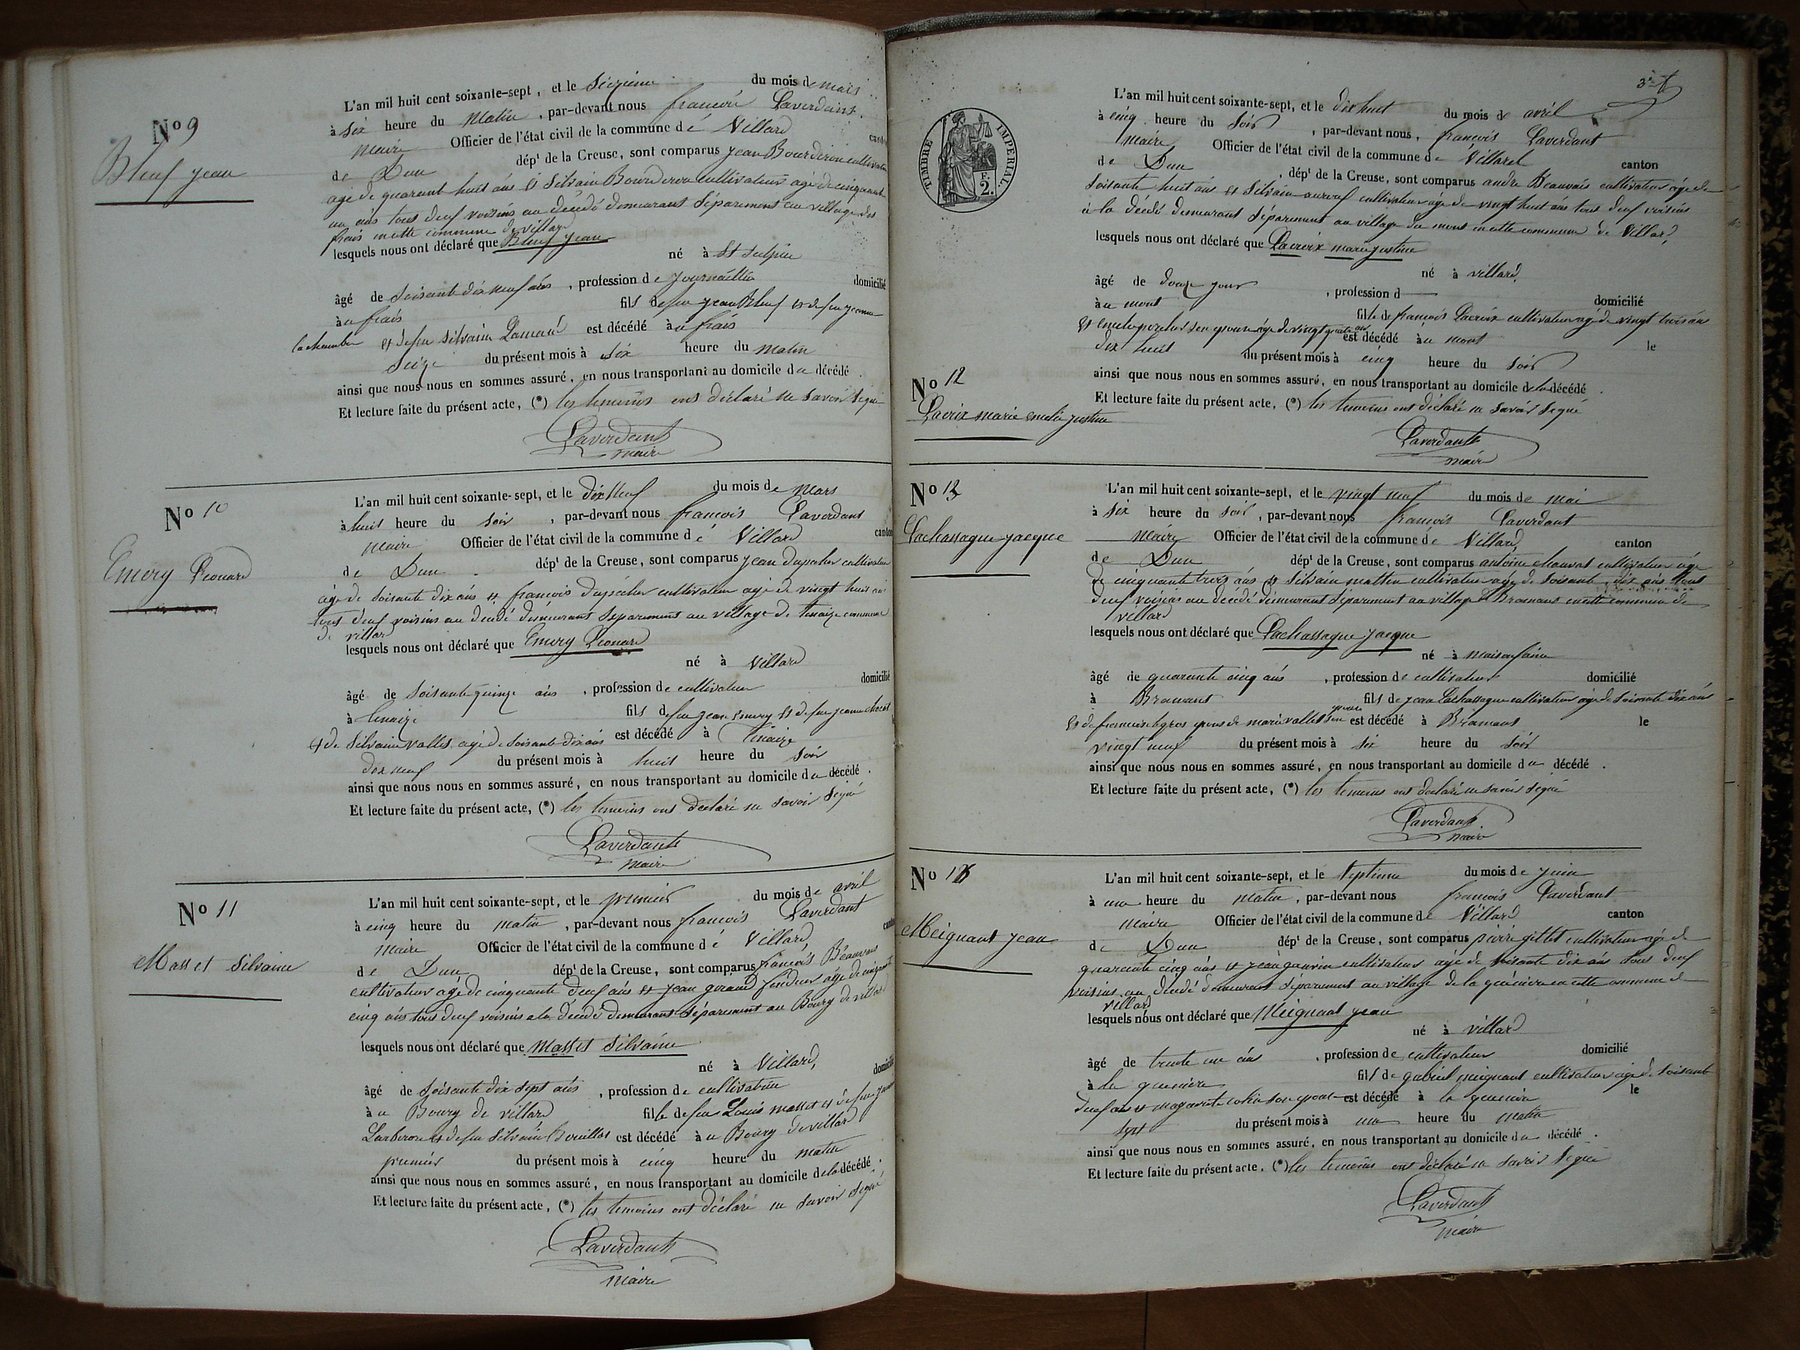 N° 9
Bleuf jean
L'an mil huit cent soixante-sept, et le Seizieme du mois de mars
à six heure du Matin, par-devant nous françois Laverdant
Maire Officier de l'état civil de la commune d é Villard canton
de Dun dépt de la Creuse, sont comparus jean Bourderon cultivateur
age de quarant huit ans et Silvain Bourderon cultivateur age de cinquant
un ans tous deuf voisins au décédé demeurant Séparement au village des
frais en cette commune de villard
lesquels nous ont déclaré que Bleuf jean
né à St Sulpice
âgé de Soisante dix neuf ans, profession de journaillier domicilié
à u frais fils de feu jean Bleuf et de feu jeanne
lachambre et de feu Silvain Lamand est décédé à u frais
Seize du présent mois à six heure du matin
ainsi que nous nous en sommes assuré, en nous transportant au domicile d u décédé.
Et lecture faite du présent acte, (*) les temoins ont déclaré ne savoir Signé
Laverdant
maire
N° 10
Emery Léonard
L'an mil huit cent soixante-sept, et le dix Neuf du mois de Mars
à huit heure du soir, par-devant nous françois Laverdant
Maire Officier de l'état civil de la commune d é Villard canton
de Dun dépt de la Creuse, sont comparus jean Duprcher cultivateur
age de Soisante dix ans et francois Dupscher cultivateur age de vingt huit an
tous deuf voisins au décédé demeurant Séparement au village de Linaize commune
de villard
lesquels nous ont déclaré que Emery Léonard
né à Villard
âgé de Soisante quinze ans, profession de cultivateur domicilié
à Linaize fils de feu jean Emery et de feu jeanne
et de Silvain Vallès agé de Soisante dix ans est décédé à Linaize
dix neuf du présent mois à huit heure du Soir
ainsi que nous nous en sommes assuré, en nous transportant au domicile d u décédé.
Et lecture faite du présent acte, (*) les temoins ont declaré ne savoir Signé
Laverdant
Maire
N° 11
Masset Silvaine
L'an mil huit cent soixante-sept, et le premier du mois de avril
à cinq heure du matin, par-devant nous francois Laverdant
Maire Officier de l'état civil de la commune d é Villard
de Dun dépt de la Creuse, sont comparus francois Beauvais
cultivateur age de cinquante deuf ans et jean age de cinquante
cinq ans tous deuf voisins a la décédé demeurant Séparement au Bourg de villard
lesquels nous ont déclaré que Masset Silvaine
né à Villard,
âgé de Soisante dix sept ans, profession de cultivatrice domicilié
à u Bourg de villard fille de feu Louis masset et de feu
et de feu Silvain est décédé à u Bourg de villard
premier du présent mois à cinq heure du matin
ainsi que nous nous en sommes assuré, en nous transportant au domicile de la décédé.
Et lecture faite du présent acte, (*) les temoins ont déclaré ne savoir Signé
Laverdant
Maire
TIMBRE IMPERIAL
F.
2.
N° 12
Lacrix marie emelie justine
L'an mil huit cent soixante-sept, et le dix huit du mois de avril
à cinq heure du Soir, par-devant nous, françois Laverdant
Maire Officier de l'état civil de la commune de Villard canton
de Dun, dépt de la Creuse, sont comparus andre Beauvais cultivateur age de
Soisante huit ans et Silvain cultivateur age de vingt huit ans tous deuf voisins
à la décédé demeurant Séparement au village du mont en cette commune de Villard,
lesquels nous ont déclaré que Lacroix marie justine
né à villard,
âgé de douze jour, profession d — domicilié
à u mont fille de francois Lacroix cultivateur age de vingt trois ans
et Emelie son epouse age de vingt quatre ans est décédé à u mont le
dix huit du présent mois à cinq heure du Soir
ainsi que nous nous en sommes assuré, en nous transportant au domicile de la décédé.
Et lecture faite du présent acte, (*) les temoins ont déclaré ne savoir Signé
Laverdant
maire
N° 13
Lachassagne jacque
L'an mil huit cent soixante-sept, et le vingt neuf du mois de mai
à six heure du soir, par-devant nous françois Laverdant
Maire Officier de l'état civil de la commune d é Villard canton
de Dun dépt de la Creuse, sont comparus antoine chauvat cultivateur age
de cinquante trois ans et Silvain mathieu cultivateur age de Soisant dix ans tous
deuf voisins au décédé demeurant Séparement au village de Bramant en cette commune de
Villard
lesquels nous ont déclaré que Lachassagne jacque
né à maisonfaine
âgé de quarante cinq ans, profession de cultivateur domicilié
à Bramant fils de jean Lachassagne cultivateur age de Soisante dix ans
et de francoise epoux de marie vallet est décédé à Bramant le
vingt neuf du présent mois à six heure du Soir
ainsi que nous nous en sommes assuré, en nous transportant au domicile d u décédé.
Et lecture faite du présent acte, (*) les temoins ont declaré ne savoir Signé
Laverdant
maire
N° 14
Meignant jean
L'an mil huit cent soixante-sept, et le Septieme du mois de juin
à une heure du Matin, par-devant nous françois Laverdant
Maire Officier de l'état civil de la commune d é Villard canton
de Dun dépt de la Creuse, sont comparus pierre gillet cultivateur age de
quarente cinq ans et jean cultivateur age de Soisante dix ans tous deuf
voisins au décédé demeurant Séparement au village de la en cette commune de
Villard
lesquels nous ont déclaré que Meignant jean
né à villard
âgé de trente un ans, profession de cultivateur domicilié
à la fils de gabriel meignant cultivateur age de Soisante
deuf ans et margarite son epouse est décédé à la le
sept du présent mois à une heure du matin
ainsi que nous nous en sommes assuré, en nous transportant au domicile d u décédé.
Et lecture faite du présent acte. (*) les temoins ont déclaré ne savoir Signé
Laverdant
Maire